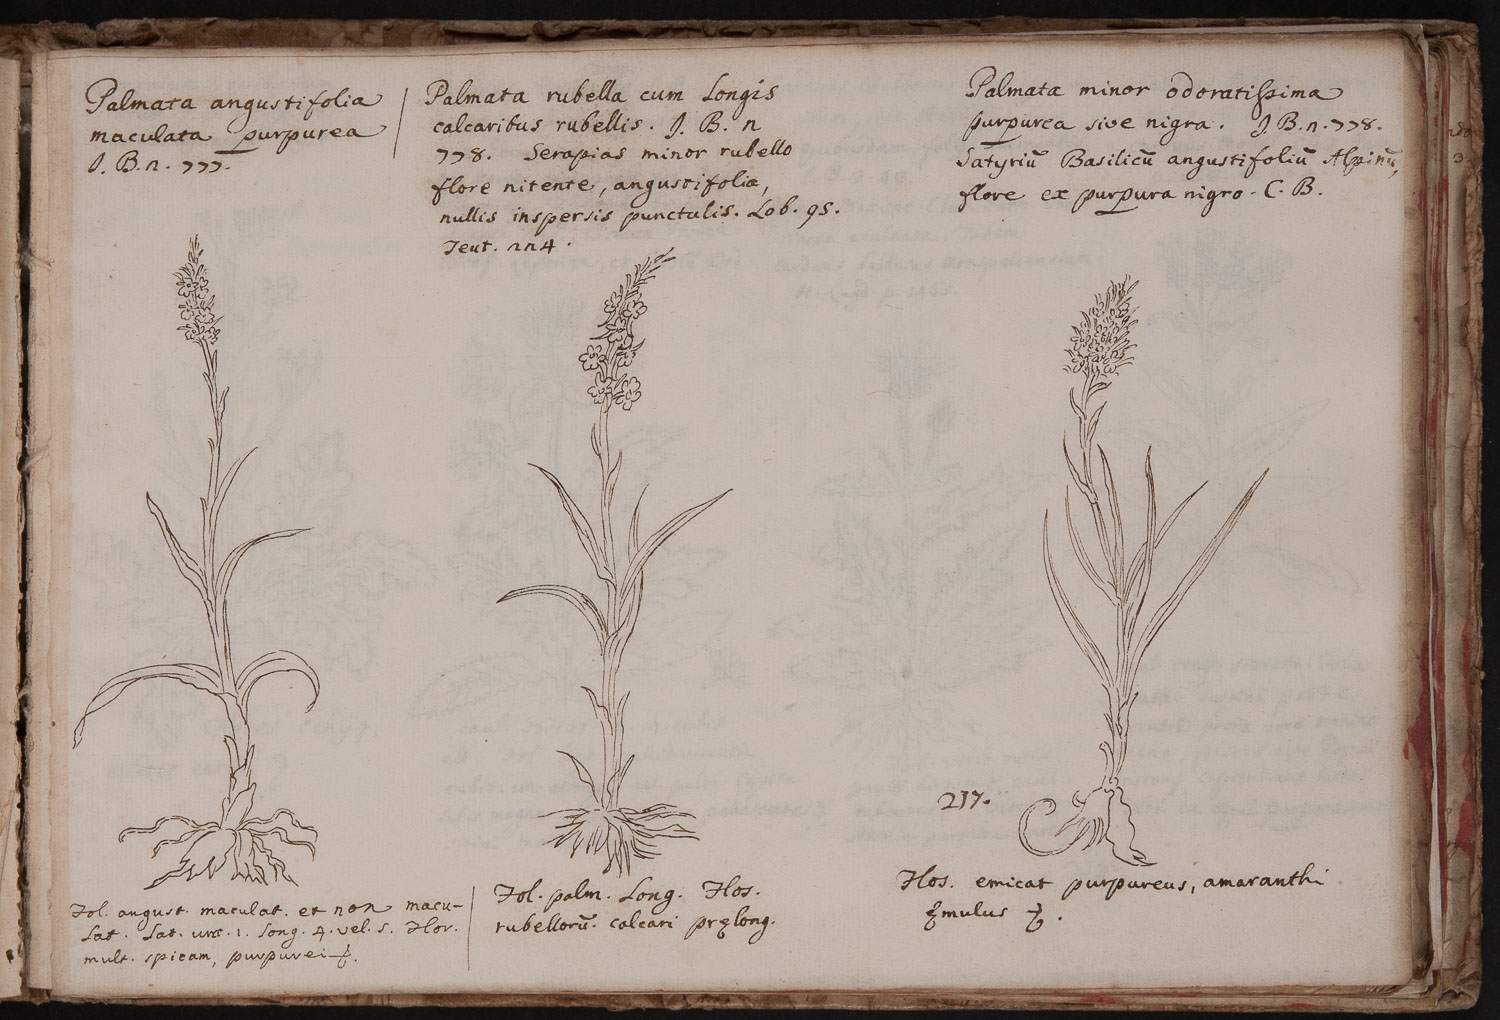 Palmata angustifolia
maculata purpurea
J. B. 2. 777.
Palmata rubella cum Longis
calcaribus rubellis. J. B. 2
778. Serapias minor rubello
flore nitente, angustifolia,
nullis inspersis punctulis. Lob. 95.
Teut. 224.
Palmata minor odoratissima
purpurea sive nigra. J. B. 2. 778.
Satyriū Basilicū angustifoliū Alpinū,
flore ex purpura nigro. C. B.
237.
Fol. angust. maculat. et non macu-
lat. Lat. unc. 1. Long. 4. vel. 5. Flor.
mult. spicam, purpurei
Fol. palm. Long. Flos.
rubellorū. calcari prælong.
Flos. emicat purpureus, amaranthi
æmulus